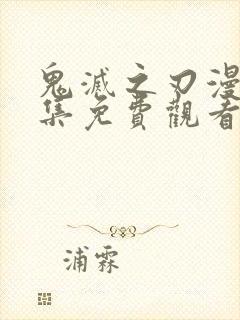 鬼滅之刃漫
集免費觀看
浦霖